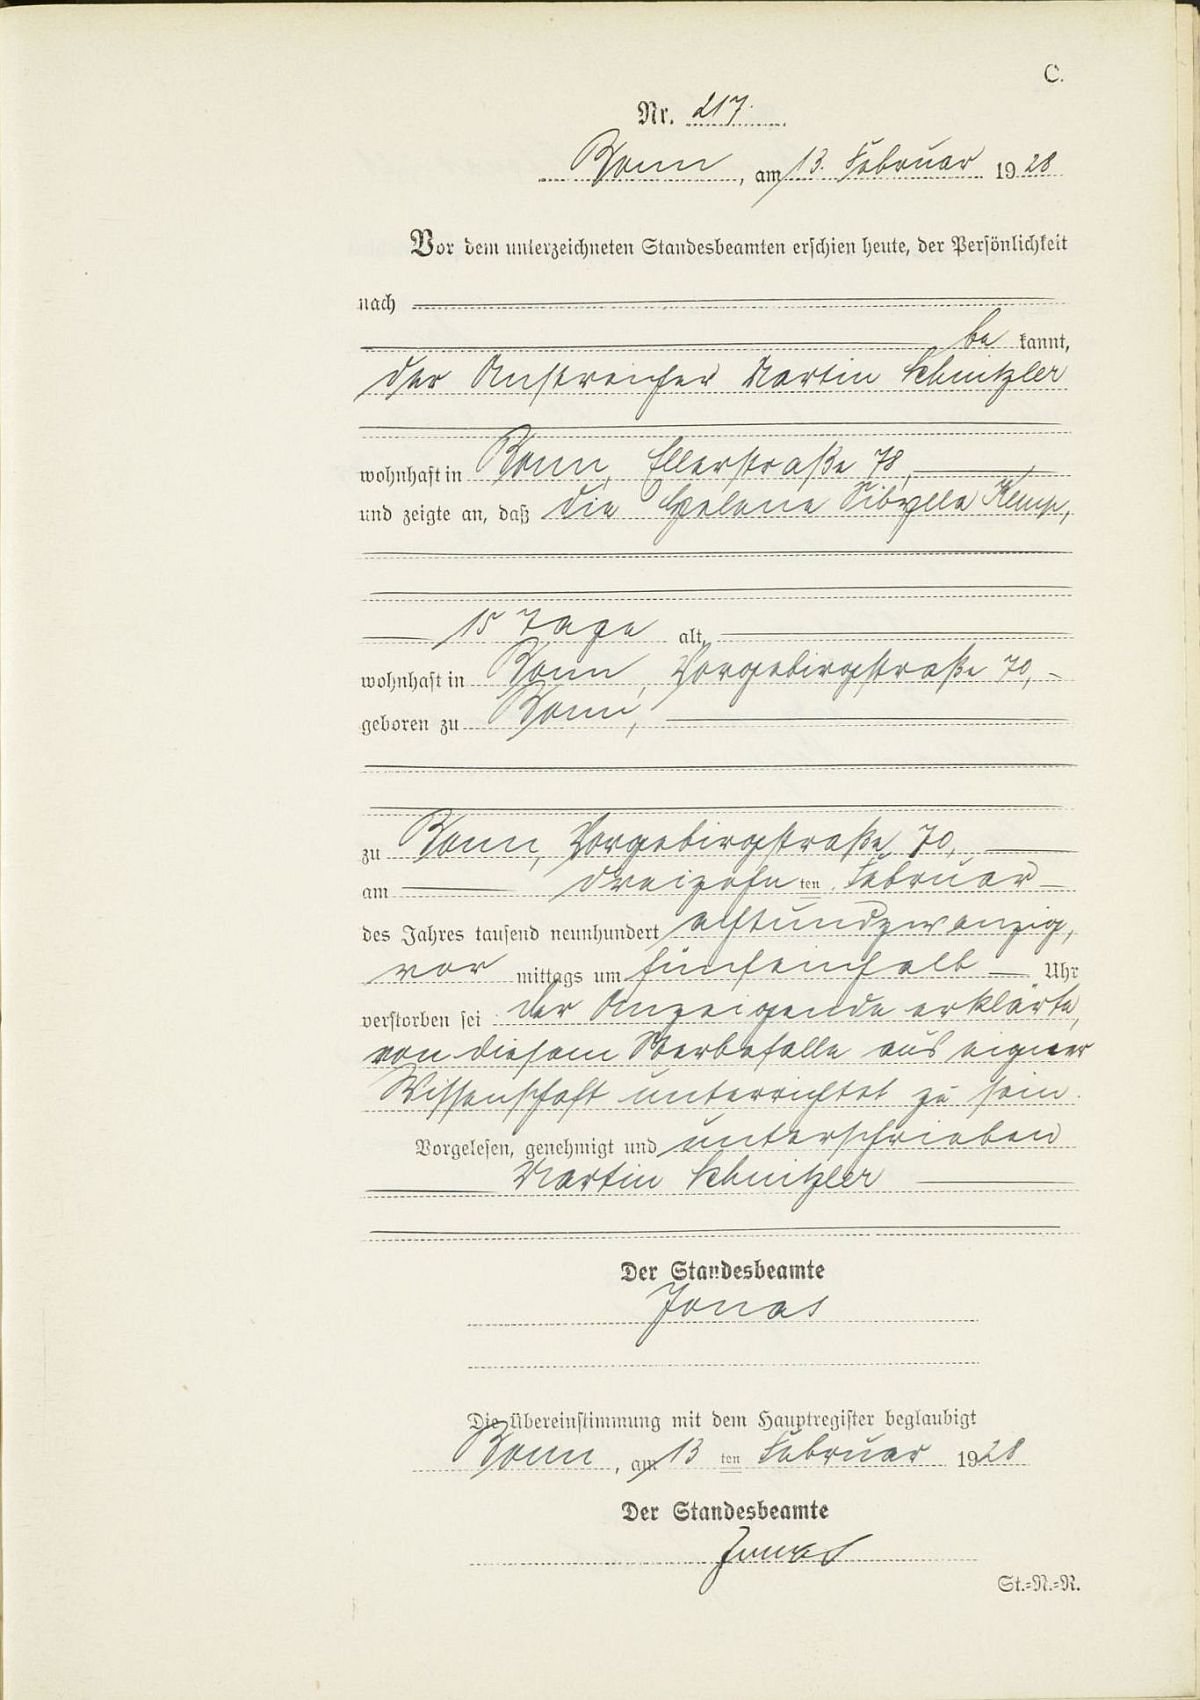 C.
Nr. 217.
Bonn, am 13. Februar 1928
Vor dem unterzeichneten Standesbeamten erschien heute, der Persönlichkeit
nach
be kannt,
der Anstreicher Martin Schnitzler
wohnhaft in Bonn, Ellerstraße 78,
und zeigte an, daß die Helene Sibylla Klemp,
15 Tage alt,
wohnhaft in Bonn, Vorgebirgstraße 70,
geboren zu Bonn,
zu Bonn, Vorgebirgstraße 70,
am dreizehn ten Februar
des Jahres tausend neunhundert achtundzwanzig,
vor mittags um fünfeinhalb Uhr
verstorben sei. Der Anzeigende erklärte,
von diesem Sterbefalle aus eigner
Wissenschaft unterrichtet zu sein.
Vorgelesen, genehmigt und unterschrieben
Martin Schnitzler
Der Standesbeamte
Jonas
Die Übereinstimmung mit dem Hauptregister beglaubigt
Bonn, am 13 ten Februar 1928
Der Standesbeamte
Jonas
St.=N.=R.